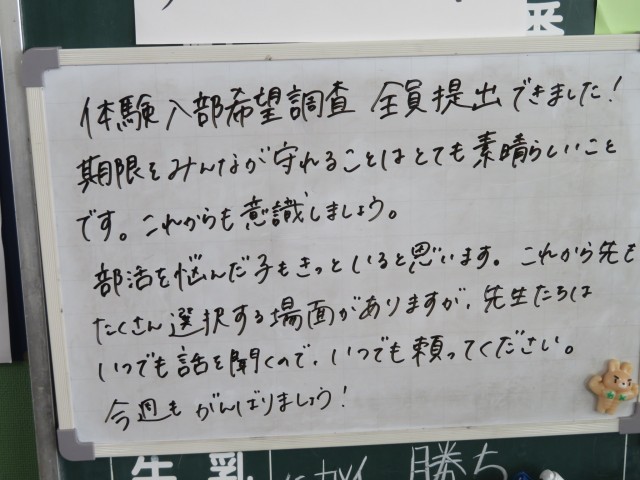 番
体験入部希望調査 全員提出できました!
期限をみんなが守れることはとても素晴らしいこと
です。これからも意識しましょう。
部活を悩んだ子もきっといると思います。これから先も
たくさん選択する場面がありますが、先生たちは
いつでも話を聞くので、いつでも頼ってください。
今週もがんばりましょう!
牛乳
勝ち